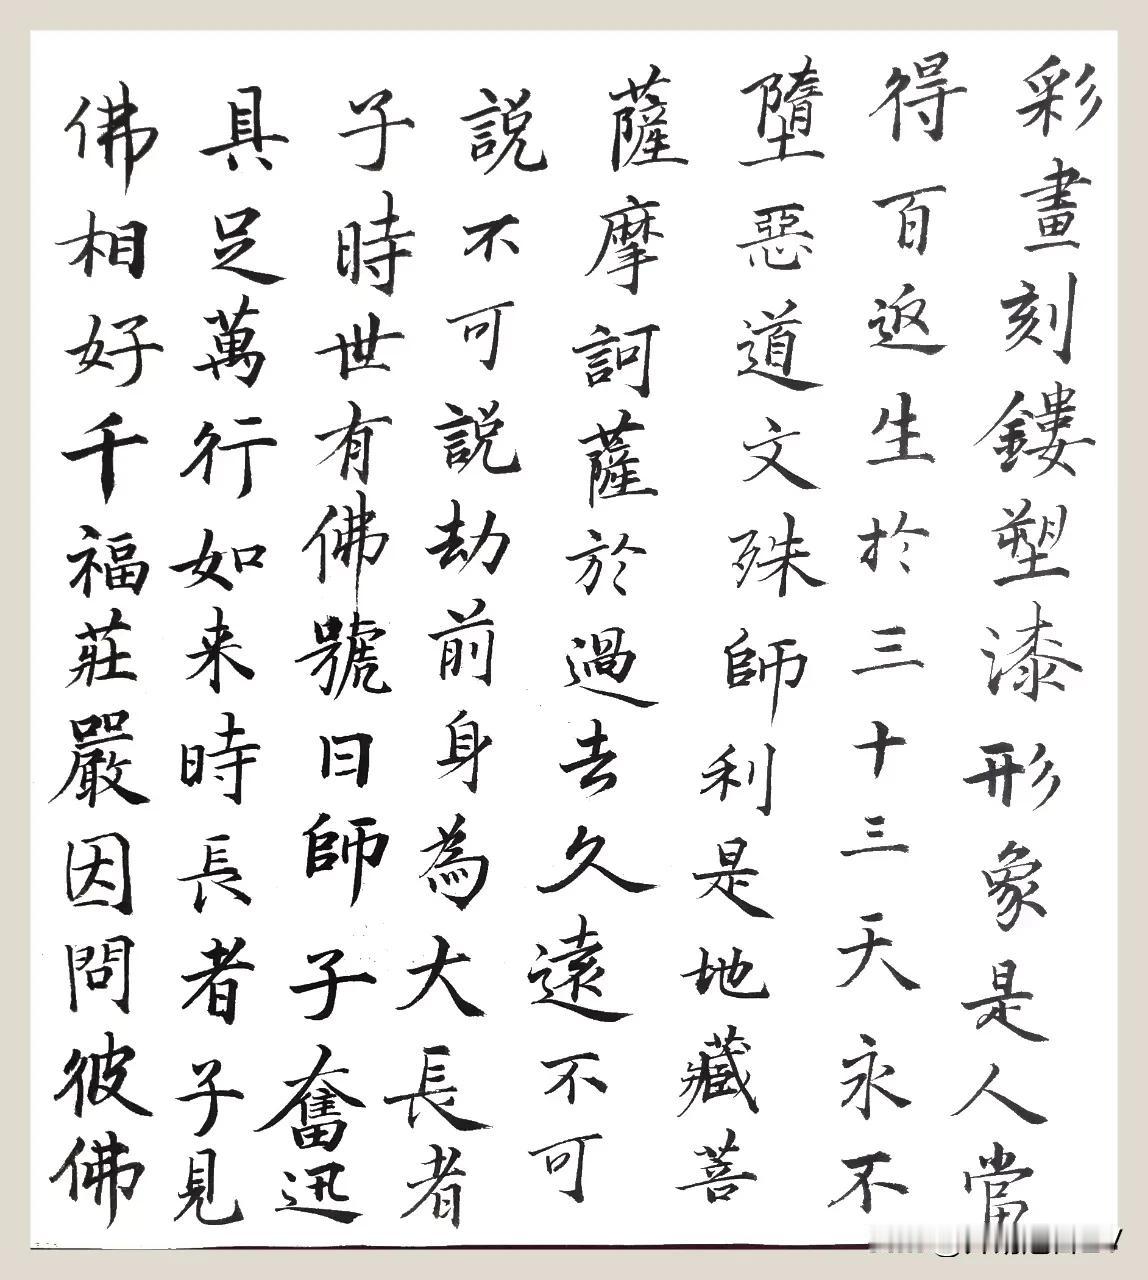 彩畫刻鏤塑漆形象是人當
得百返生於三十三天永不
墮惡道文殊師利是地藏菩
薩摩訶薩於過去久遠不可
說不可說劫前身為大長者
子時世有佛號曰師子奮迅
具足萬行如来時長者子見
佛相好千福莊嚴因問彼佛